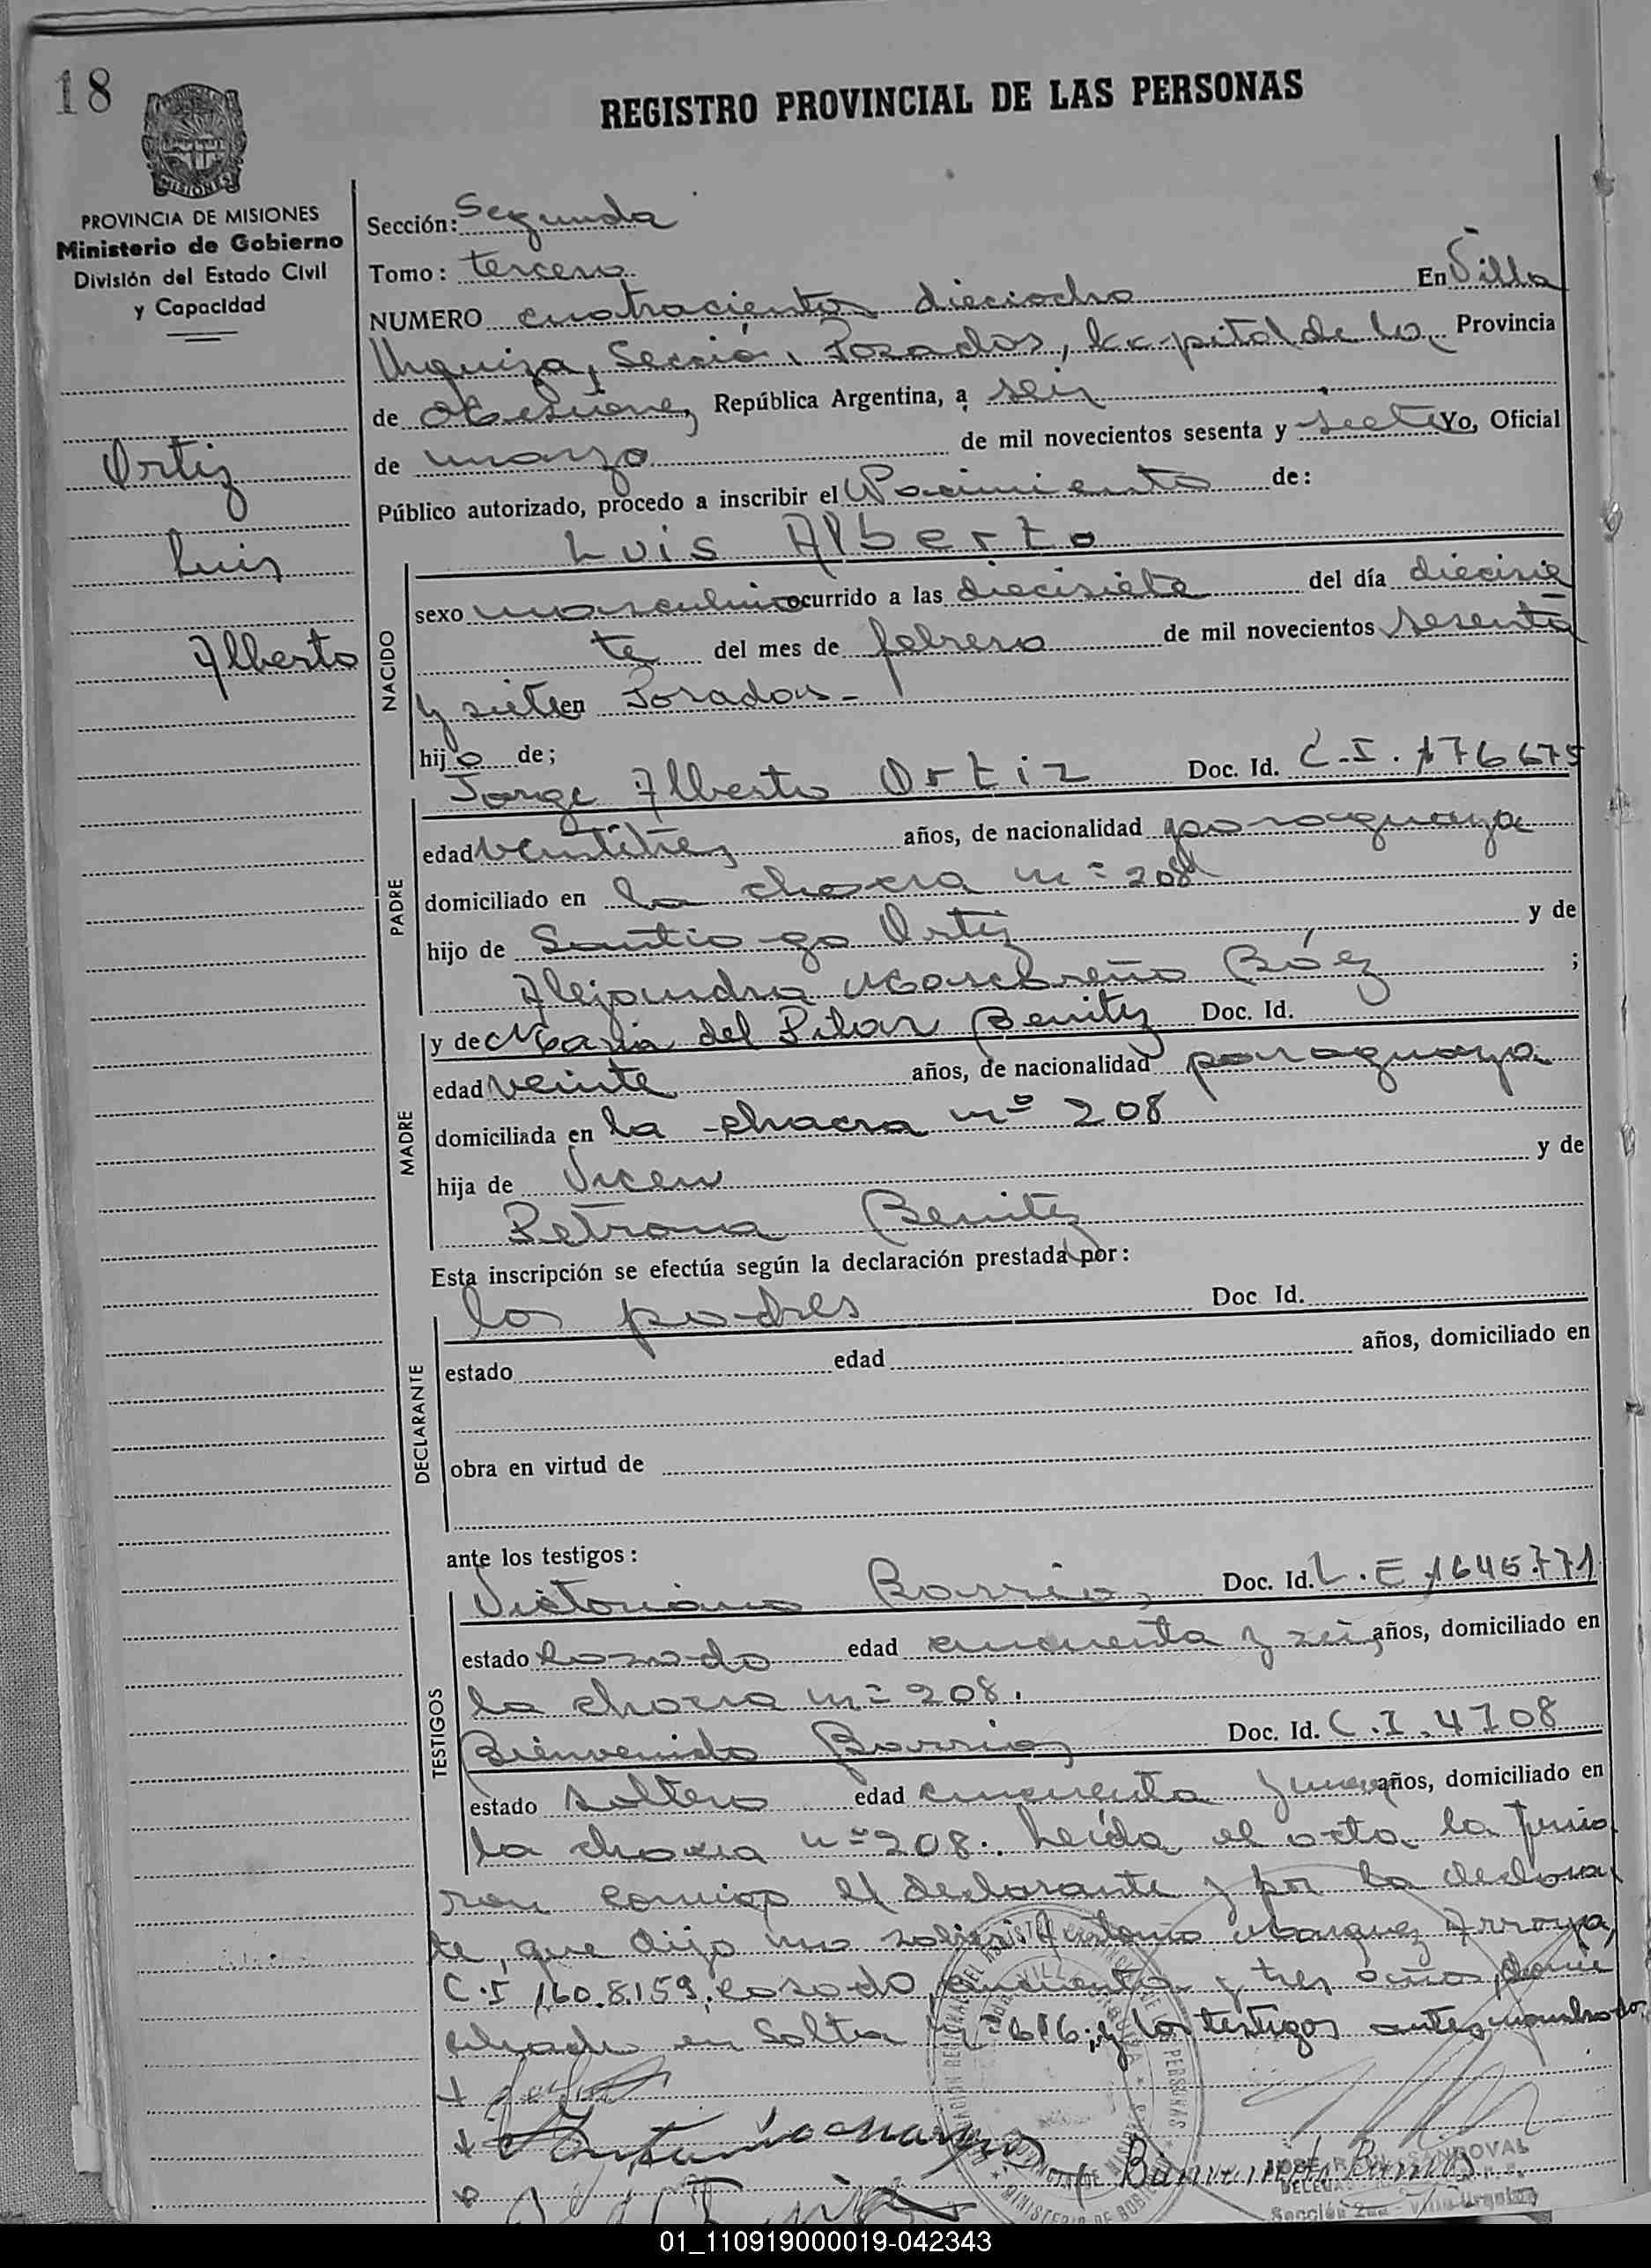 18
REGISTRO PROVINCIAL DE LAS PERSONAS
MISIONES
PROVINCIA DE MISIONES
Ministerio de Gobierno
División del Estado Civil
y Capacidad
Ortiz
Luis
Alberto
Sección: Segunda
Tomo: tercero
NUMERO cuatrocientos dieciocho En Villa
Urquiza, Sección Posadas, Capital de la Provincia
de Misiones, República Argentina, a seis
de marzo de mil novecientos sesenta y siete Yo, Oficial
Público autorizado, procedo a inscribir el Nacimiento de:
Luis Alberto
NACIDO
sexo masculino ocurrido a las diecisiete del día diecisie
te del mes de febrero de mil novecientos sesenta
y siete en Posadas-
hijo de;
Jorge Alberto Ortiz Doc. Id. C.I. 176675
PADRE
edad veintitrés años, de nacionalidad paraguaya
domiciliado en la chacra nº 208
hijo de Santiago Ortiz y de
Alejandra Báez;
MADRE
y de María del Pilar Benitez Doc. Id.
edad veinte años, de nacionalidad paraguaya
domiciliada en la chacra nº 208
hija de y de
Petrona Benitez
Esta inscripción se efectúa según la declaración prestada por:
los padres Doc Id.
DECLARANTE
estado edad años, domiciliado en
obra en virtud de
ante los testigos:
TESTIGOS
Victoriano Barrios Doc. Id. L.E. 1645.771
estado casado edad cincuenta y seis años, domiciliado en
la chacra nº 208.
Bienvenido Barrios Doc. Id. C.I. 4708
estado soltero edad cincuenta y años, domiciliado en
la chacra nº 208. Leída el acta, la firma
ron conmigo el declarante y por la declaran
te, que dijo no saber Antonio Marquez Arroyo,
C.I 160.8.159, casado, cincuenta y tres años, domi
ciliado en Salta nº 616; y los testigos antes nombrados.
SANDOVAL
Sección 2da - Villa Urquiza
01_110919000019-042343